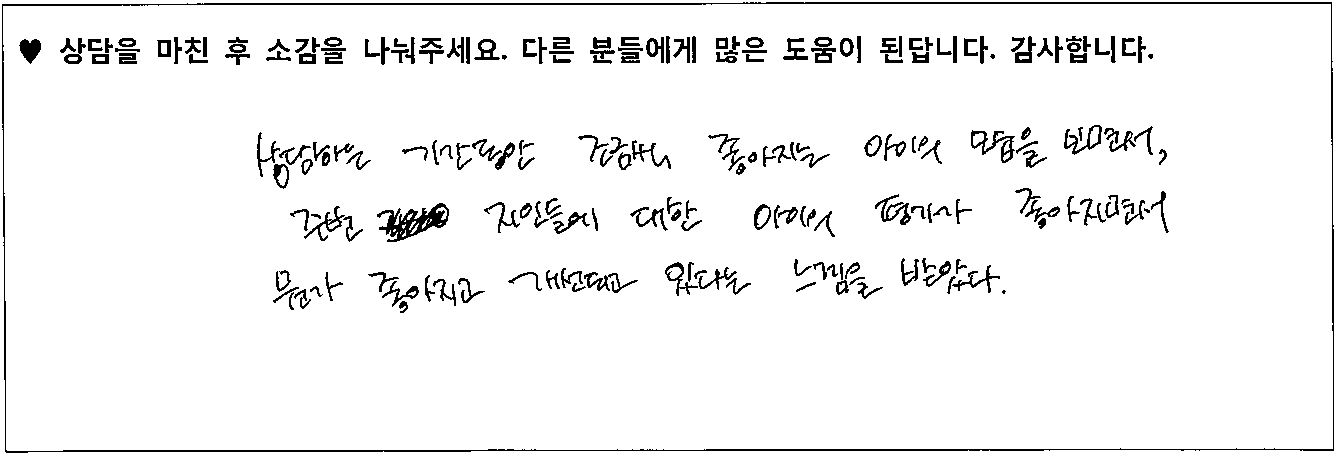 ♥ 상담을 마친 후 소감을 나눠주세요. 다른 분들에게 많은 도움이 된답니다. 감사합니다.
상담하는 기간동안 조금씩 좋아지는 아이의 모습을 보면서,
주변 지인들에 대한 아이의 평가가 좋아지면서
뭔가 좋아지고 개선되고 있다는 느낌을 받았다.